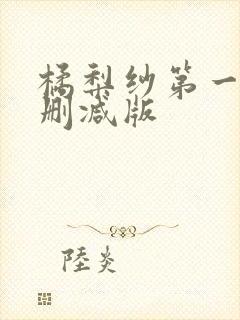 橘梨纱第一
删减版
陸炎